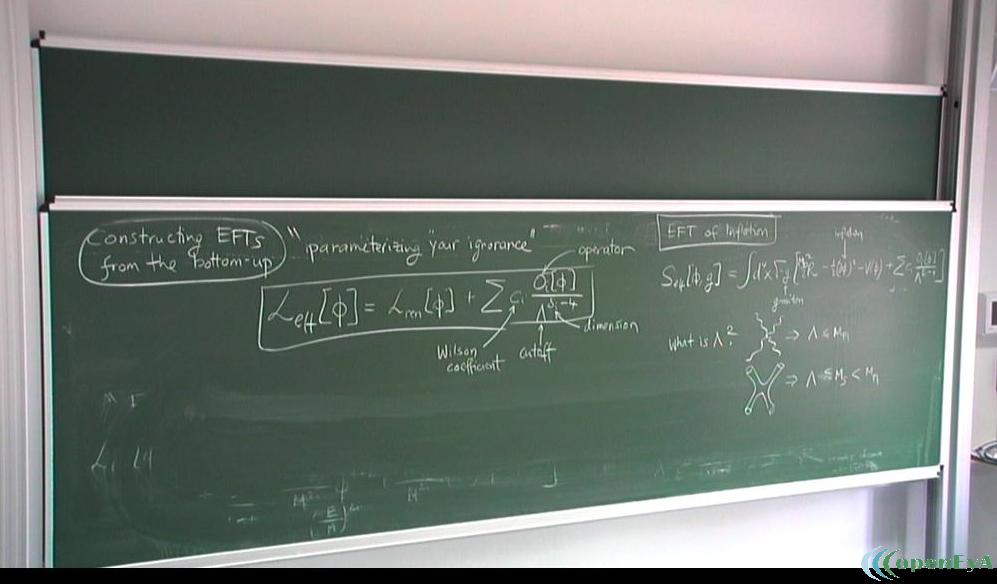 Constructing EFTs
from the bottom-up
"parameterizing your ignorance"
operator
L_eff[ϕ] = L_ren[ϕ] + Σ c_i O_i[ϕ] / Λ^(δ_i-4)
dimension
Wilson
coefficient
cutoff
EFT of Inflation
inflaton
S_eff[ϕ,g] = ∫d⁴x √-g [ - ½(∂ϕ)² - V(ϕ) + Σ c_i O_i[ϕ] / ]
graviton
What is Λ?
⇒ Λ ≤
⇒ Λ ≤ M_s <
openEyA